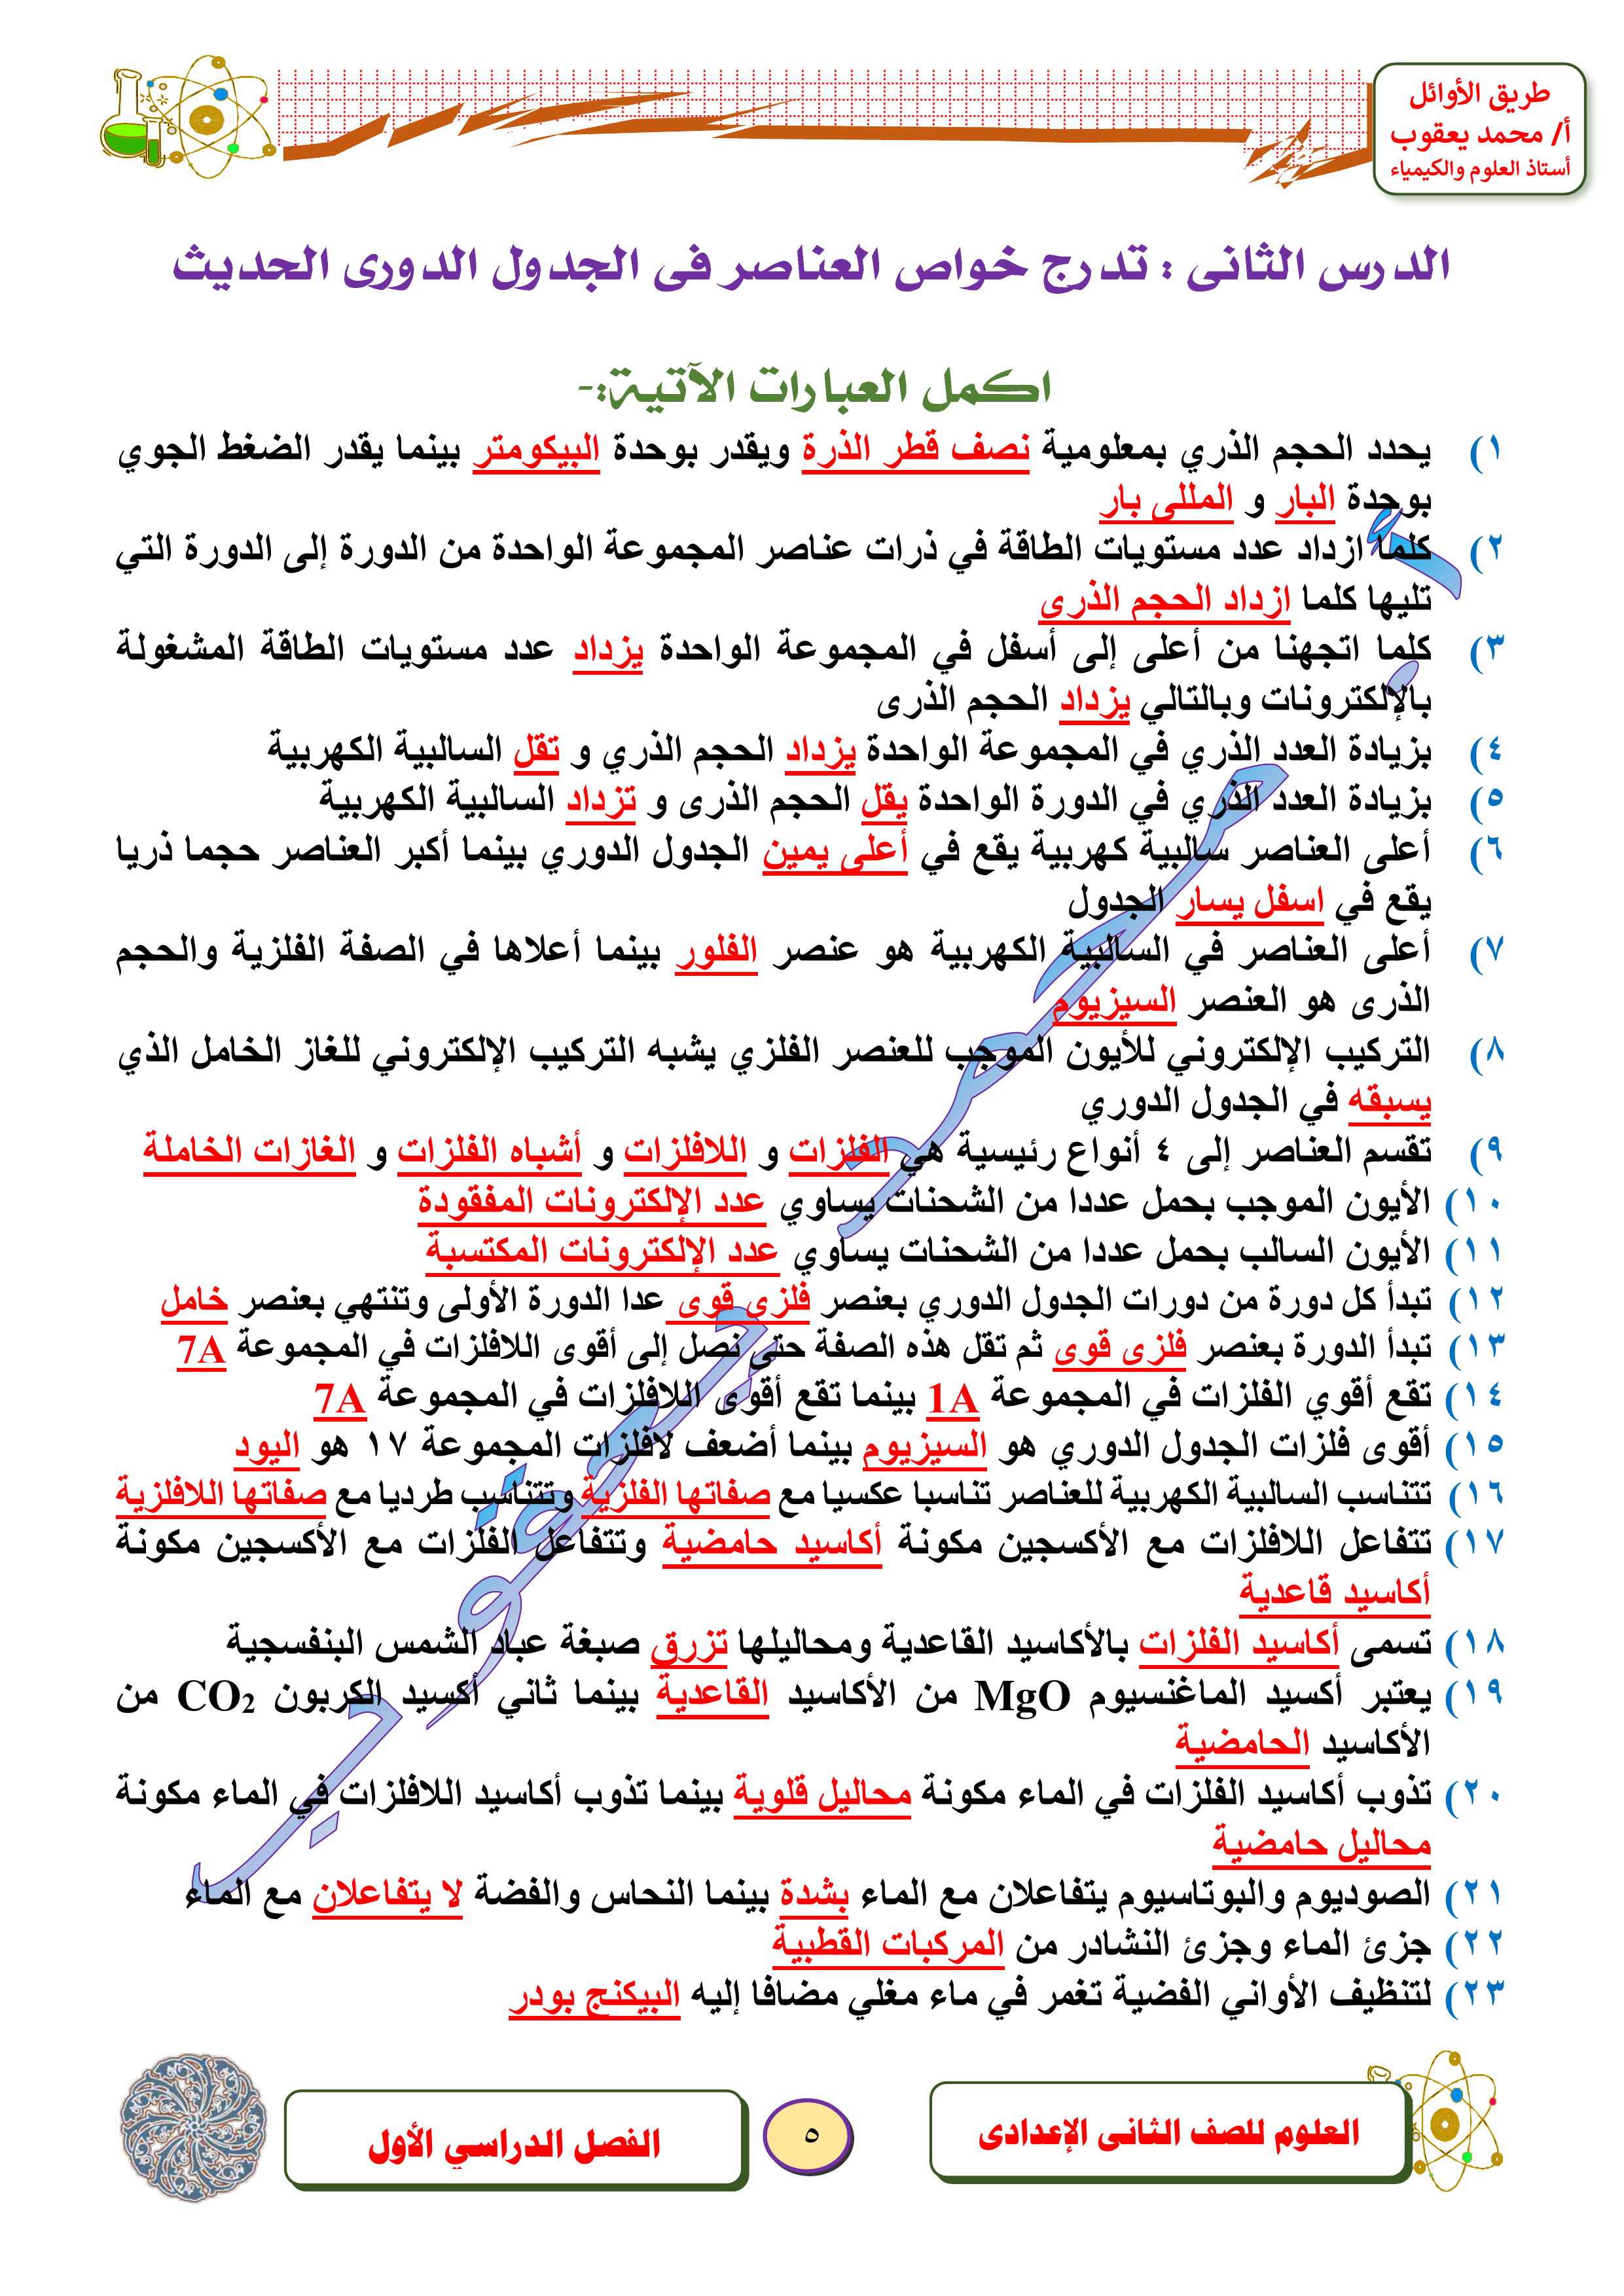 طريق الأوائل
أ/ محمد يعقوب
أستاذ العلوم والكيمياء
الدرس الثانى : تدرج خواص العناصر فى الجدول الدورى الحديث
اكمل العبارات الآتية:-
١) يحدد الحجم الذري بمعلومية نصف قطر الذرة ويقدر بوحدة البيكومتر بينما يقدر الضغط الجوي
بوحدة البار و المللى بار
٢) كلما ازداد عدد مستويات الطاقة في ذرات عناصر المجموعة الواحدة من الدورة إلى الدورة التي
تليها كلما ازداد الحجم الذرى
٣) كلما اتجهنا من أعلى إلى أسفل في المجموعة الواحدة يزداد عدد مستويات الطاقة المشغولة
بالإلكترونات وبالتالي يزداد الحجم الذرى
٤) بزيادة العدد الذري في المجموعة الواحدة يزداد الحجم الذري و تقل السالبية الكهربية
٥) بزيادة العدد الذري في الدورة الواحدة يقل الحجم الذرى و تزداد السالبية الكهربية
٦) أعلى العناصر سالبية كهربية يقع في أعلى يمين الجدول الدوري بينما أكبر العناصر حجما ذريا
يقع في اسفل يسار الجدول
٧) أعلى العناصر في السالبية الكهربية هو عنصر الفلور بينما أعلاها في الصفة الفلزية والحجم
الذرى هو العنصر السيزيوم
٨) التركيب الإلكتروني للأيون الموجب للعنصر الفلزي يشبه التركيب الإلكتروني للغاز الخامل الذي
يسبقه في الجدول الدوري
٩) تقسم العناصر إلى ٤ أنواع رئيسية هي الفلزات و اللافلزات و أشباه الفلزات و الغازات الخاملة
١٠) الأيون الموجب بحمل عددا من الشحنات يساوي عدد الإلكترونات المفقودة
١١) الأيون السالب بحمل عددا من الشحنات يساوي عدد الإلكترونات المكتسبة
١٢) تبدأ كل دورة من دورات الجدول الدوري بعنصر فلزى قوى عدا الدورة الأولى وتنتهي بعنصر خامل
١٣) تبدأ الدورة بعنصر فلزى قوى ثم تقل هذه الصفة حتى نصل إلى أقوى اللافلزات في المجموعة 7A
١٤) تقع أقوي الفلزات في المجموعة 1A بينما تقع أقوى اللافلزات في المجموعة 7A
١٥) أقوى فلزات الجدول الدوري هو السيزيوم بينما أضعف لافلزات المجموعة ١٧ هو اليود
١٦) تتناسب السالبية الكهربية للعناصر تناسبا عكسيا مع صفاتها الفلزية وتتناسب طرديا مع صفاتها اللافلزية
١٧) تتفاعل اللافلزات مع الأكسجين مكونة أكاسيد حامضية وتتفاعل الفلزات مع الأكسجين مكونة
أكاسيد قاعدية
١٨) تسمى أكاسيد الفلزات بالأكاسيد القاعدية ومحاليلها تزرق صبغة عباد الشمس البنفسجية
١٩) يعتبر أكسيد الماغنسيوم MgO من الأكاسيد القاعدية بينما ثاني أكسيد الكربون CO₂ من
الأكاسيد الحامضية
٢٠) تذوب أكاسيد الفلزات في الماء مكونة محاليل قلوية بينما تذوب أكاسيد اللافلزات في الماء مكونة
محاليل حامضية
٢١) الصوديوم والبوتاسيوم يتفاعلان مع الماء بشدة بينما النحاس والفضة لا يتفاعلان مع الماء
٢٢) جزئ الماء وجزئ النشادر من المركبات القطبية
٢٣) لتنظيف الأواني الفضية تغمر في ماء مغلي مضافا إليه البيكنج بودر
أ. محمد يعقوب
العلوم للصف الثانى الإعدادى
٥
الفصل الدراسي الأول